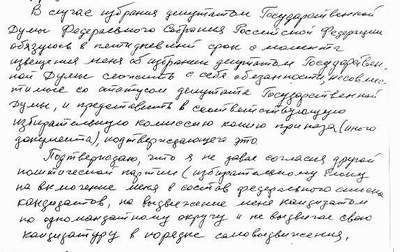 В случае избрания депутатом Государственной
Думы Федерального Собрания Российской Федерации
обязуюсь в пятидневный срок с момента
извещения меня об избрании депутатом Государствен-
ной Думы сложить с себя обязанности, несовмес-
тимые со статусом депутата Государственной
Думы, и представить в соответствующую
избирательную комиссию копию приказа (иного
документа), подтверждающего это.
Подтверждаю, что я не давал согласия другой
политической партии (избирательному блоку)
на включение меня в состав федерального списка
кандидатов, на выдвижение меня кандидатом
по одномандатному округу и не выдвигал свою
кандидатуру в порядке самовыдвижения.